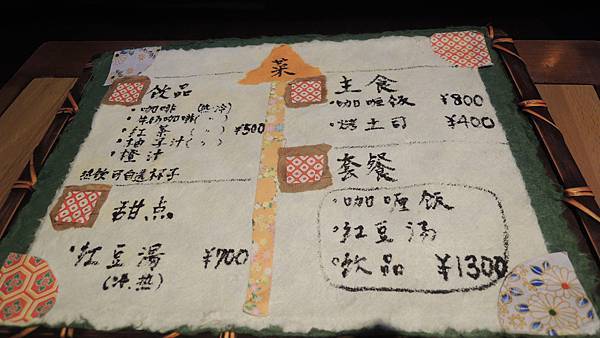 菜
飲品
・咖啡(熱冷)
・牛奶咖啡(〃)
・紅茶(〃) ¥500
・柚子汁(〃)
・橙汁
熱飲可自選杯子
甜点
・紅豆湯 ¥700
(冷.熱)
主食
・咖喱饭 ¥800
・烤土司 ¥400
套餐
・咖喱飯
・紅豆湯
・飲品 ¥1300